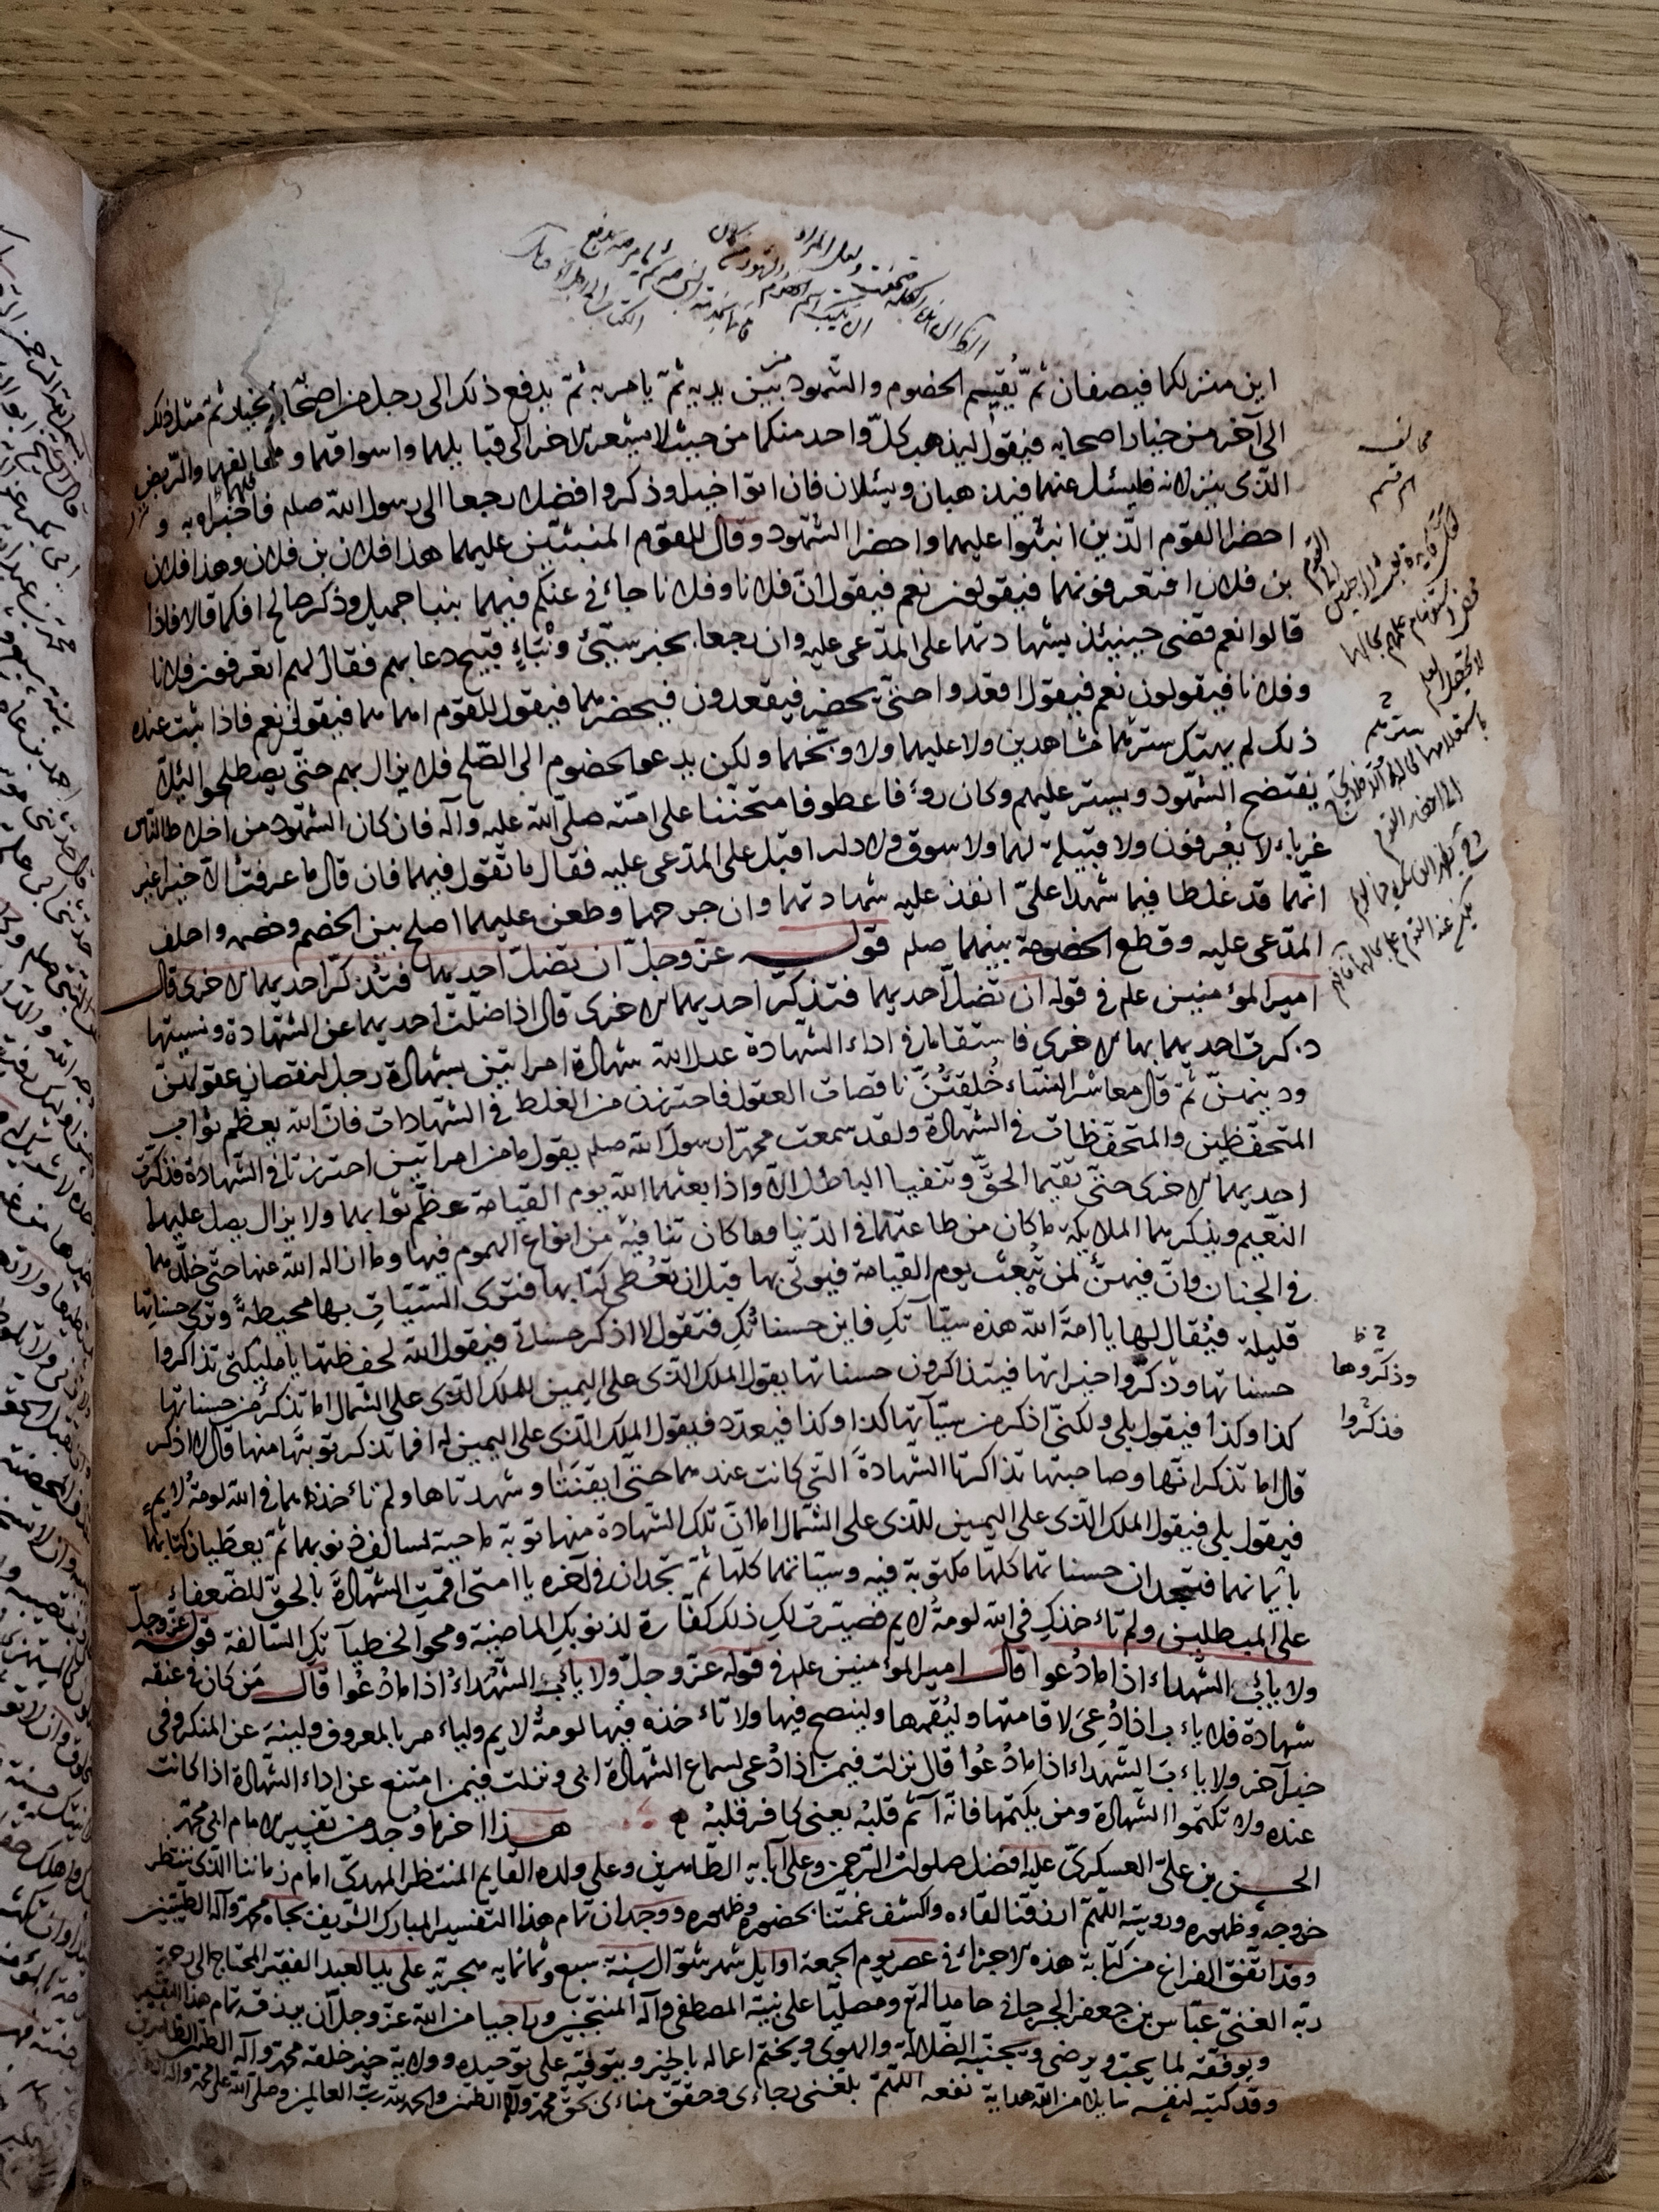 اين منزلكما فيصفان ثمّ يُقيم الخصوم والشهود من بين يديه ثمّ يامر به ثمّ يدفع ذلك الى رجل من اصحابه الخيار ثم مثل ذلك
الى آخر من خيار اصحابه فيقول ليذهب كلّ واحد منكما من حيث لا يشعر الاخر الى قبايلهما واسواقهما و محالهما والرّبض
الذى ينزلانه فليسئل عنهما فيذهبان ويسئلان فان اتوا خيرا وذكروا فضلا رجعا الى رسول الله صلم فاخبراه به و
احضرا القوم الّذين اثنوا عليهما واحضرا الشهود وقال للقوم المثنين عليهما هذا فلان بن فلان وهذا فلان
بن فلان افتعرفونهما فيقولون نعم فيقول انّ فلانا وفلانا جاءنى عنكم فيهما بنبا جميل وذكر صالح افكما قالا فاذا
قالوا نعم قضى حينئذ بشهادتهما على المدّعى عليه وان رجعا بخبر سيّئ ونباءٍ قبيح دعا بهم فقال لهم اتعرفون فلانا
وفلانا فيقولون نعم فيقول اقعدوا حتّى يحضر فيقعدون فيحضرهما فيقول للقوم اهما هما فيقولون نعم فاذا ثبت عنده
ذلك لم يهتك سترهما شاهدين ولا عليهما ولا وبّخهما ولكن يدعو الخصوم الى الصّلح فلا يزال بهم حتّى يصطلحوا لئلا
يفتضح الشهود ويستر عليهم وكان رؤفا عطوفا متحنّنا على امّته صلّى الله عليه وآله فان كان الشهود من اخلاط الناس
غرباء لا يعرفون ولا قبيلة لهما ولا سوق ولا دار اقبل على المدّعى عليه فقال ما تقول فيهما فان قال ما عرفت الّا خيرا غير
انّهما قد غلطا فيما شهدا علىّ انفذ عليه شهادتهما وان جرحهما وطعن عليهما اصلح بين الخصم وخصمه واحلف
المدّعى عليه وقطع الخصومة بينهما صلم قوله عزّ وجلّ ان تضلّ احديهما فتذكّر احديهما الاخرى قال
امير المؤمنين علم فى قوله ان تضلّ احديهما فتذكّر احديهما الاخرى قال اذا ضلّت احديهما عن الشهادة ونسيتها
ذكرت احديهما بها الاخرى فاستقاما فى اداء الشهادة عدل الله شهادة امراتين بشهادة رجل لنقصان عقولهنّ
ودينهنّ ثمّ قال معاشر النساء خُلقتنّ ناقصات العقول فاحترزن من الغلط فى الشهادات فانّ الله يعظم ثواب
المتحفّظين والمتحفّظات فى الشهادة ولقد سمعت محمّدا رسول الله صلم يقول ما من امراتين احترزتا فى الشهادة فذكرت
احديهما الاخرى حتّى تقيما الحقّ وتنفيا الباطل الّا واذا بعثهما الله يوم القيامة عظّم ثوابهما ولا يزال يصل عليهما
النّعيم ويذكرهما الملايكة ما كان من طاعتهما فى الدّنيا وما كان تا فيه من انواع الهموم فيها وما ازاله الله عنها حتّى خلّدهما
فى الجنان وانّ فيهنّ لمن تبعث يوم القيامة فيوتى بها قبل ان تعطى كتابها فترى السّيئات بها محيطة وترى حسناتها
قليلة فيقال لها يا امة الله هذه سيّآتك فاين حسناتك فتقول لا اذكر حسناتى فيقول الله لحفظتها يا مليكتى تذاكروا
حسناتها وذكّروا خيراتها فيتذاكرون حسناتها يقول الملك الذى على اليمين للملك الذى على الشمال اما تذكر من حسناتها
كذا وكذا فيقول بلى ولكنّى اذكر من سيّآتها كذا وكذا فيعدّد فيقول الملك الذى على اليمين له افما تذكر توبتها منها قال لا اذكر
قال اما تذكر انّها وصاحبتها تذاكرتا الشهادة الّتى كانت عندهما حتّى ايقنتا وشهدتاها ولم تاخذهما فى الله لومة لايم
فيقول بلى فيقول الملك الذى على اليمين للذى على الشمال اما انّ تلك الشهادة منهما توبة ماحية لسالف ذنوبهما ثم يعطيان كتابهما
بايمانهما فتجدان حسناتهما كلّها مكتوبة فيه وسيّاتهما كلّها ثم تجدان فى آخره يا امتى اقمت الشّهادة بالحق للضعفاء
على المبطلين ولم تاخذك فى الله لومة لايم فصيّرت لك ذلك كفّارة لذنوبك الماضية ومحوا لخطيآتك السّالفة قوله عزّ وجلّ
ولا ياب الشهداء اذا ما دُعوا قال امير المؤمنين علم فى قوله عزّ وجلّ ولا ياب الشهداءُ اذا ما دُعُوا قال من كان فى عنقه
شهادة فلا ياب اذا دُعِىَ لاقامتها وليُقمها ولينصح فيها ولا تاخذه فيها لومةُ لايم وليامر بالمعروف ولينهَ عن المنكر وفى
خبر آخر ولا ياب الشهداء اذا ما دُعُوا قال نزلت فيمن اذا دُعى لسماع الشهادة ابى ونزلت فيمن امتنع عن اداء الشهادة اذا كانت
عنده ولا تكتموا الشهادة ومن يكتمها فانّه آثم قلبه يعنى كافر قلبُه هذا آخر ما وُجد من تفسير الامام ابى محمّد
الحسن بن علىّ العسكرىّ عليه افضل صلوات الرّحمن وعلى آبايه الطّاهرين وعلى ولده القايم المنتظر المهدىّ امام زماننا الذى ننتظر
خروجه وظهوره ورويته اللّهمّ ارزقنا لقاءه واكشف غمّتنا بحضوره وظهوره ووجدان تمام هذا التفسير المبارك الشّريف بجاه محمّد وآله الطيّبين
وقد اتّفق الفراغ من كتابة هذه الاجزاء فى عصر يوم الجمعة اوايل شهر شوّال سنة سبع وثمانمايه هجريّة على يد العبد الفقير المحتاج الى رحمة
ربّه الغنىّ عبّاس بن جعفر الجرجانى حامدا له تع ومصلّيا على نبيّه المصطفى وآله المنتجبين وراجيا من الله عزّ وجلّ ان يرزقه تمام هذا التفسير
ويوفّقه لما يحبّ ويرضى ويجنّبه الضّلالة والهوى ويختم اعماله بالخير ويتوفّيه على توحيده وولاية خير خلقه محمّد وآله الطيّبين الطاهرين
وقد كتبه لنفسه سايلا من الله هداية نفعه اللّهمّ بلّغنى رجاءى وحقّق مناءى بحق محمّد وآله الطيّبين والحمد لله ربّ العالمين وصلّى الله على محمّد وآله
وذكّروها
فذكروا